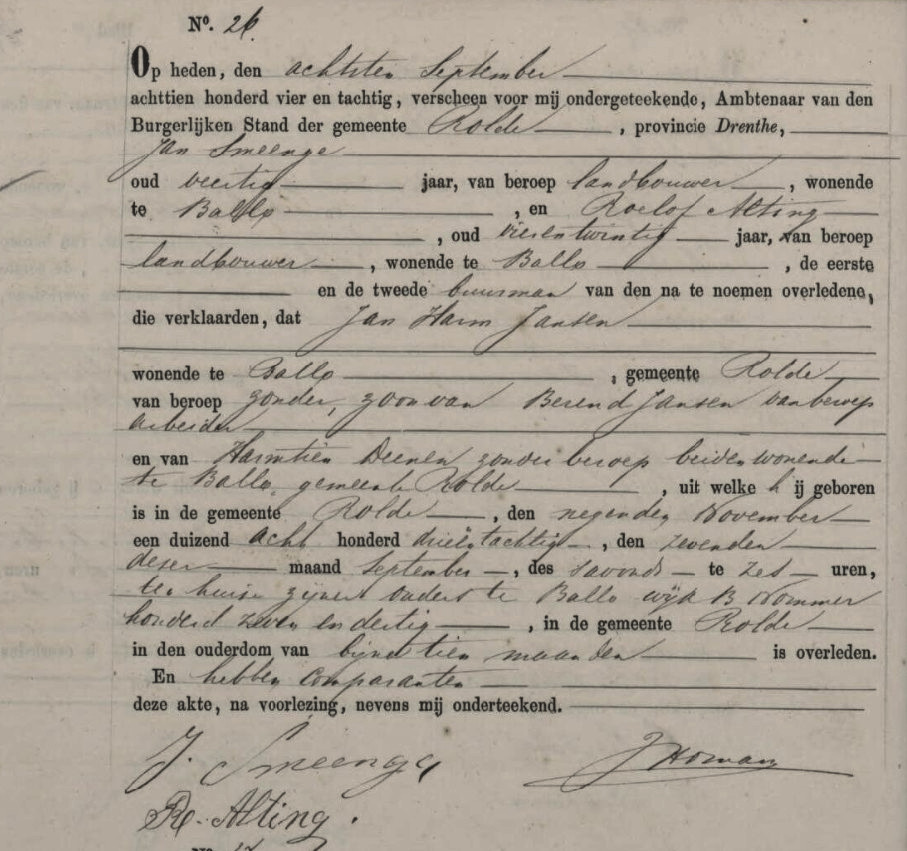 N⁰. 26.
Op heden, den achtsten September
achttien honderd vier en tachtig, verscheen voor mij ondergeteekende, Ambtenaar van den
Burgerlijken Stand der gemeente Rolde, provincie Drenthe,
Jan Smeenge
oud veertig jaar, van beroep landbouwer, wonende
te Ballo, en Roelof Alting
, oud vierentwintig jaar, van beroep
landbouwer, wonende te Ballo, de eerste
en de tweede buurman van den na te noemen overledene,
die verklaarden, dat Jan Harm Jansen
wonende te Ballo, gemeente Rolde
van beroep zonder, zoon van Berend Jansen van beroep
arbeider
en van Harmtien Deenen zonder beroep beiden wonende
te Ballo, gemeente Rolde, uit welke hij geboren
is in de gemeente Rolde, den negenden November
een duizend acht honderd drieëntachtig, den zevenden
dezer maand September, des savonds te zes uren,
ten huize zijner ouders te Ballo wijk B Nommer
honderd zeven en dertig, in de gemeente Rolde
in den ouderdom van bijna tien maanden is overleden.
En hebben Comparanten
deze akte, na voorlezing, nevens mij onderteekend.
J. Smeenge JHoman
R. Alting.